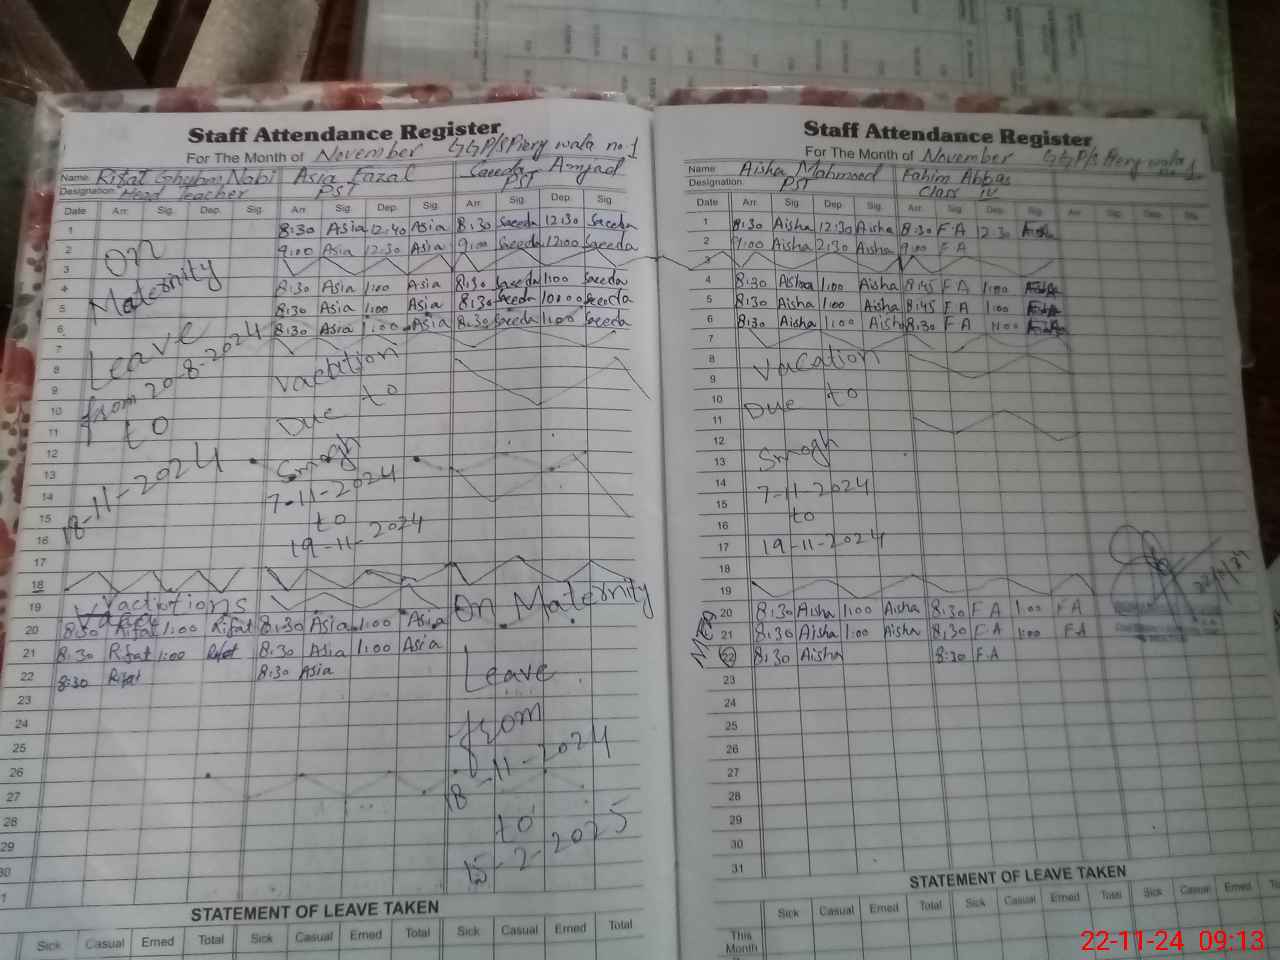 Staff Attendance Register
For The Month of November GGP/S Piery wala no.1
Name Rifat Ghulam Nabi Asia Fazal Saeeda Amjad
Designation Head Teacher PST PST
Date Arr. Sig. Dep. Sig. Arr. Sig. Dep. Sig. Arr. Sig. Dep. Sig.
1 8:30 Asia 12:40 Asia 8:30 Saeeda 12:30 Saeeda
2 9:00 Asia 12:30 Asia 9:00 Saeeda 12:00 Saeeda
3
4 8:30 Asia 1:00 Asia 8:30 Saeeda 1:00 Saeeda
5 8:30 Asia 1:00 Asia 8:30 Saeeda Saeeda
6 8:30 Asia 1:00 Asia 8:30 Saeeda 1:00 Saeeda
On
Maternity
Leave
from 20-8-2024
to
18-11-2024
7
8
9
10
11
12
13
14
15
16
17
18
Vacation
Due to
Smogh
7-11-2024
to
19-11-2024
19 Vacations
20 8:30 Rifat 1:00 Rifat 8:30 Asia 1:00 Asia
21 8:30 Rifat 1:00 Rifat 8:30 Asia 1:00 Asia
22 8:30 Rifat 8:30 Asia
On Maternity
Leave
from
18-11-2024
to
15-2-2025
23
24
25
26
27
28
29
30
STATEMENT OF LEAVE TAKEN
Sick Casual Erned Total Sick Casual Erned Total Sick Casual Erned Total
Staff Attendance Register
For The Month of November GGP/S Piery wala no.1
Name Aisha Mahmood Fahim Abbas
Designation PST Class IV
Date Arr. Sig. Dep. Sig. Arr. Sig. Dep. Sig. Arr. Sig. Dep. Sig.
1 8:30 Aisha 12:30 Aisha 8:30 F.A 12:30
2 9:00 Aisha 12:30 Aisha 9:00 F A
3
4 8:30 Aisha 1:00 Aisha 8:45 F A 1:00
5 8:30 Aisha 1:00 Aisha 8:45 F A 1:00
6 8:30 Aisha 1:00 Aisha 8:30 F A 1:00
7
8
9
10
11
12
13
14
15
16
17
18
19
Vacation
Due to
Smogh
7-11-2024
to
19-11-2024
20 8:30 Aisha 1:00 Aisha 8:30 F A 1:00 FA
21 8:30 Aisha 1:00 Aisha 8:30 F.A 1:00 F.A
22 8:30 Aisha 8:30 F.A
23
24
25
26
27
28
29
30
31
STATEMENT OF LEAVE TAKEN
Sick Casual Erned Total Sick Casual Erned Total
This
Month
22-11-24 09:13